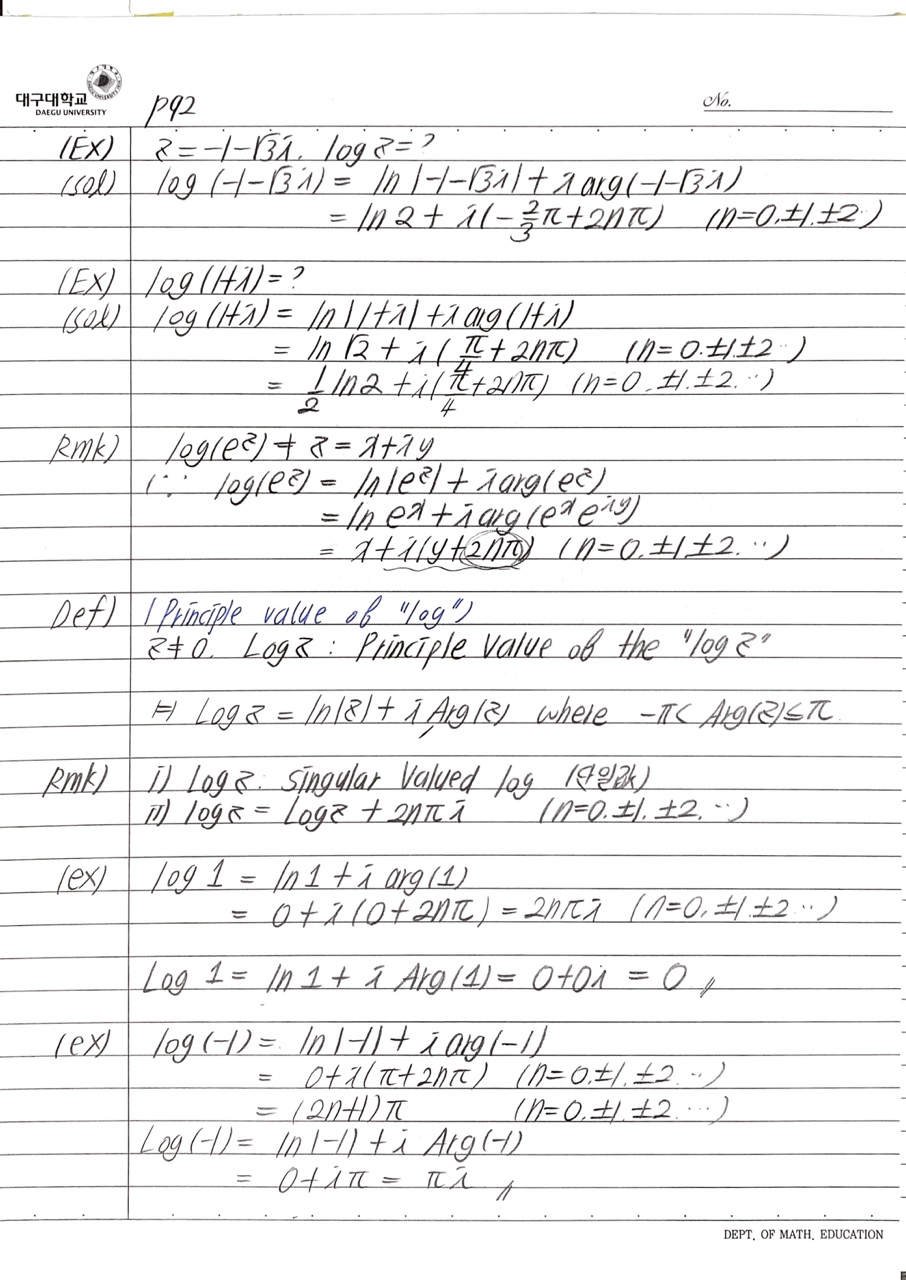 대구대학교
DAEGU UNIVERSITY
p92
No.
(Ex) z = -1-√3i. log z = ?
(sol) log (-1-√3i) = ln |-1-√3i| + i arg(-1-√3i)
= ln 2 + i(-2/3 π + 2nπ) (n=0. ±1. ±2··)
(Ex) log(1+i) = ?
(sol) log (1+i) = ln |1+i| + i arg(1+i)
= ln √2 + i (π/4 + 2nπ) (n=0. ±1. ±2··)
= 1/2 ln 2 + i(π/4 + 2nπ) (n=0. ±1. ±2. ··)
Rmk) log(e^z) ≠ z = x+iy
(∵ log(e^z) = ln |e^z| + i arg(e^z)
= ln e^x + i arg(e^x e^{iy})
= x + i(y+2nπ) (n=0. ±1. ±2. ··)
Def) (Principle value of "log")
z≠0. Log z : Principle Value of the "log z"
⇔ Log z = ln|z| + i Arg(z) where -π< Arg(z)≤π
Rmk) i) Log z. Singular Valued log (단일값)
ii) log z = Log z + 2nπi (n=0. ±1. ±2. ··)
(ex) log 1 = ln 1 + i arg(1)
= 0 + i(0+2nπ) = 2nπi (n=0. ±1. ±2··)
Log 1 = ln 1 + i Arg(1) = 0+0i = 0 〃
(ex) log(-1) = ln |-1| + i arg(-1)
= 0+i(π+2nπ) (n=0. ±1. ±2. ··)
= (2n+1)π (n=0. ±1. ±2. ···)
Log(-1) = ln |-1| + i Arg(-1)
= 0+iπ = πi 〃
DEPT. OF MATH. EDUCATION